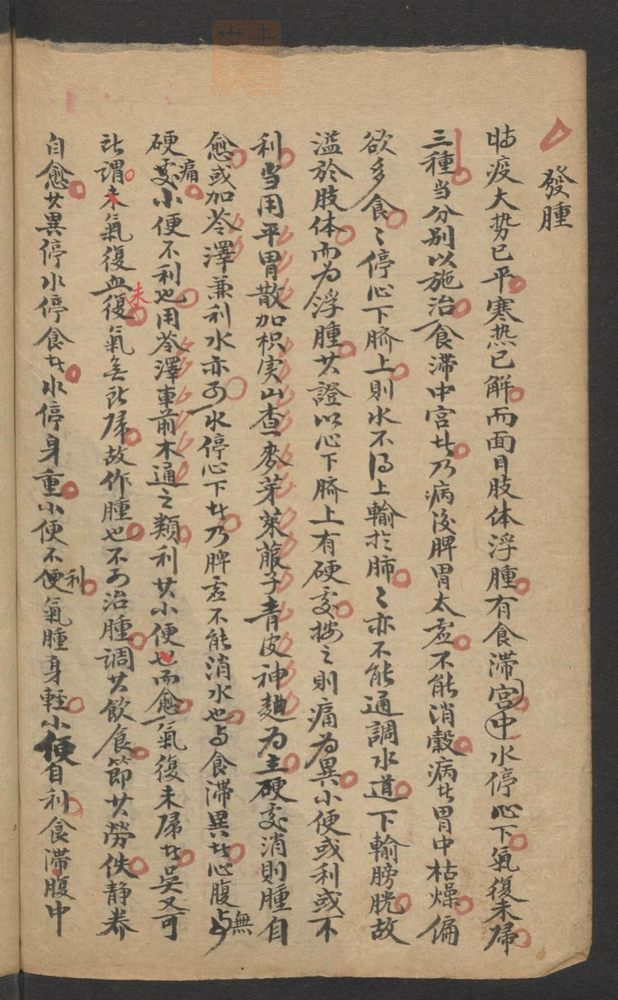 發腫
時疫大势已平寒热已解而面目肢体浮腫有食滯宮中水停心下氣復未歸
三種当分别以施治食滯中宮者乃病後脾胃太虚不能消穀病者胃中枯燥偏
欲多食々停心下臍上則水不得上輸於肺々亦不能通調水道下輸膀胱故
溢於肢体而为浮腫其證以心下臍上有硬處按之則痛为異小便或利或不
利当用平胃散加枳实山查麥芽萊菔子青皮神麯为主硬處消則腫自
愈或加苓澤兼利水亦可水停心下者乃脾虚不能消水也与食滯異者心腹無
硬痛處小便不利也用苓澤車前木通之類利其小便也而愈氣復未歸者吳又可
所謂氣復血未復氣無所歸故作腫也不可治腫調其飲食節其勞佚静养
自愈其異停水停食者水停身重小便不利氣腫身輕小便自利食滯腹中